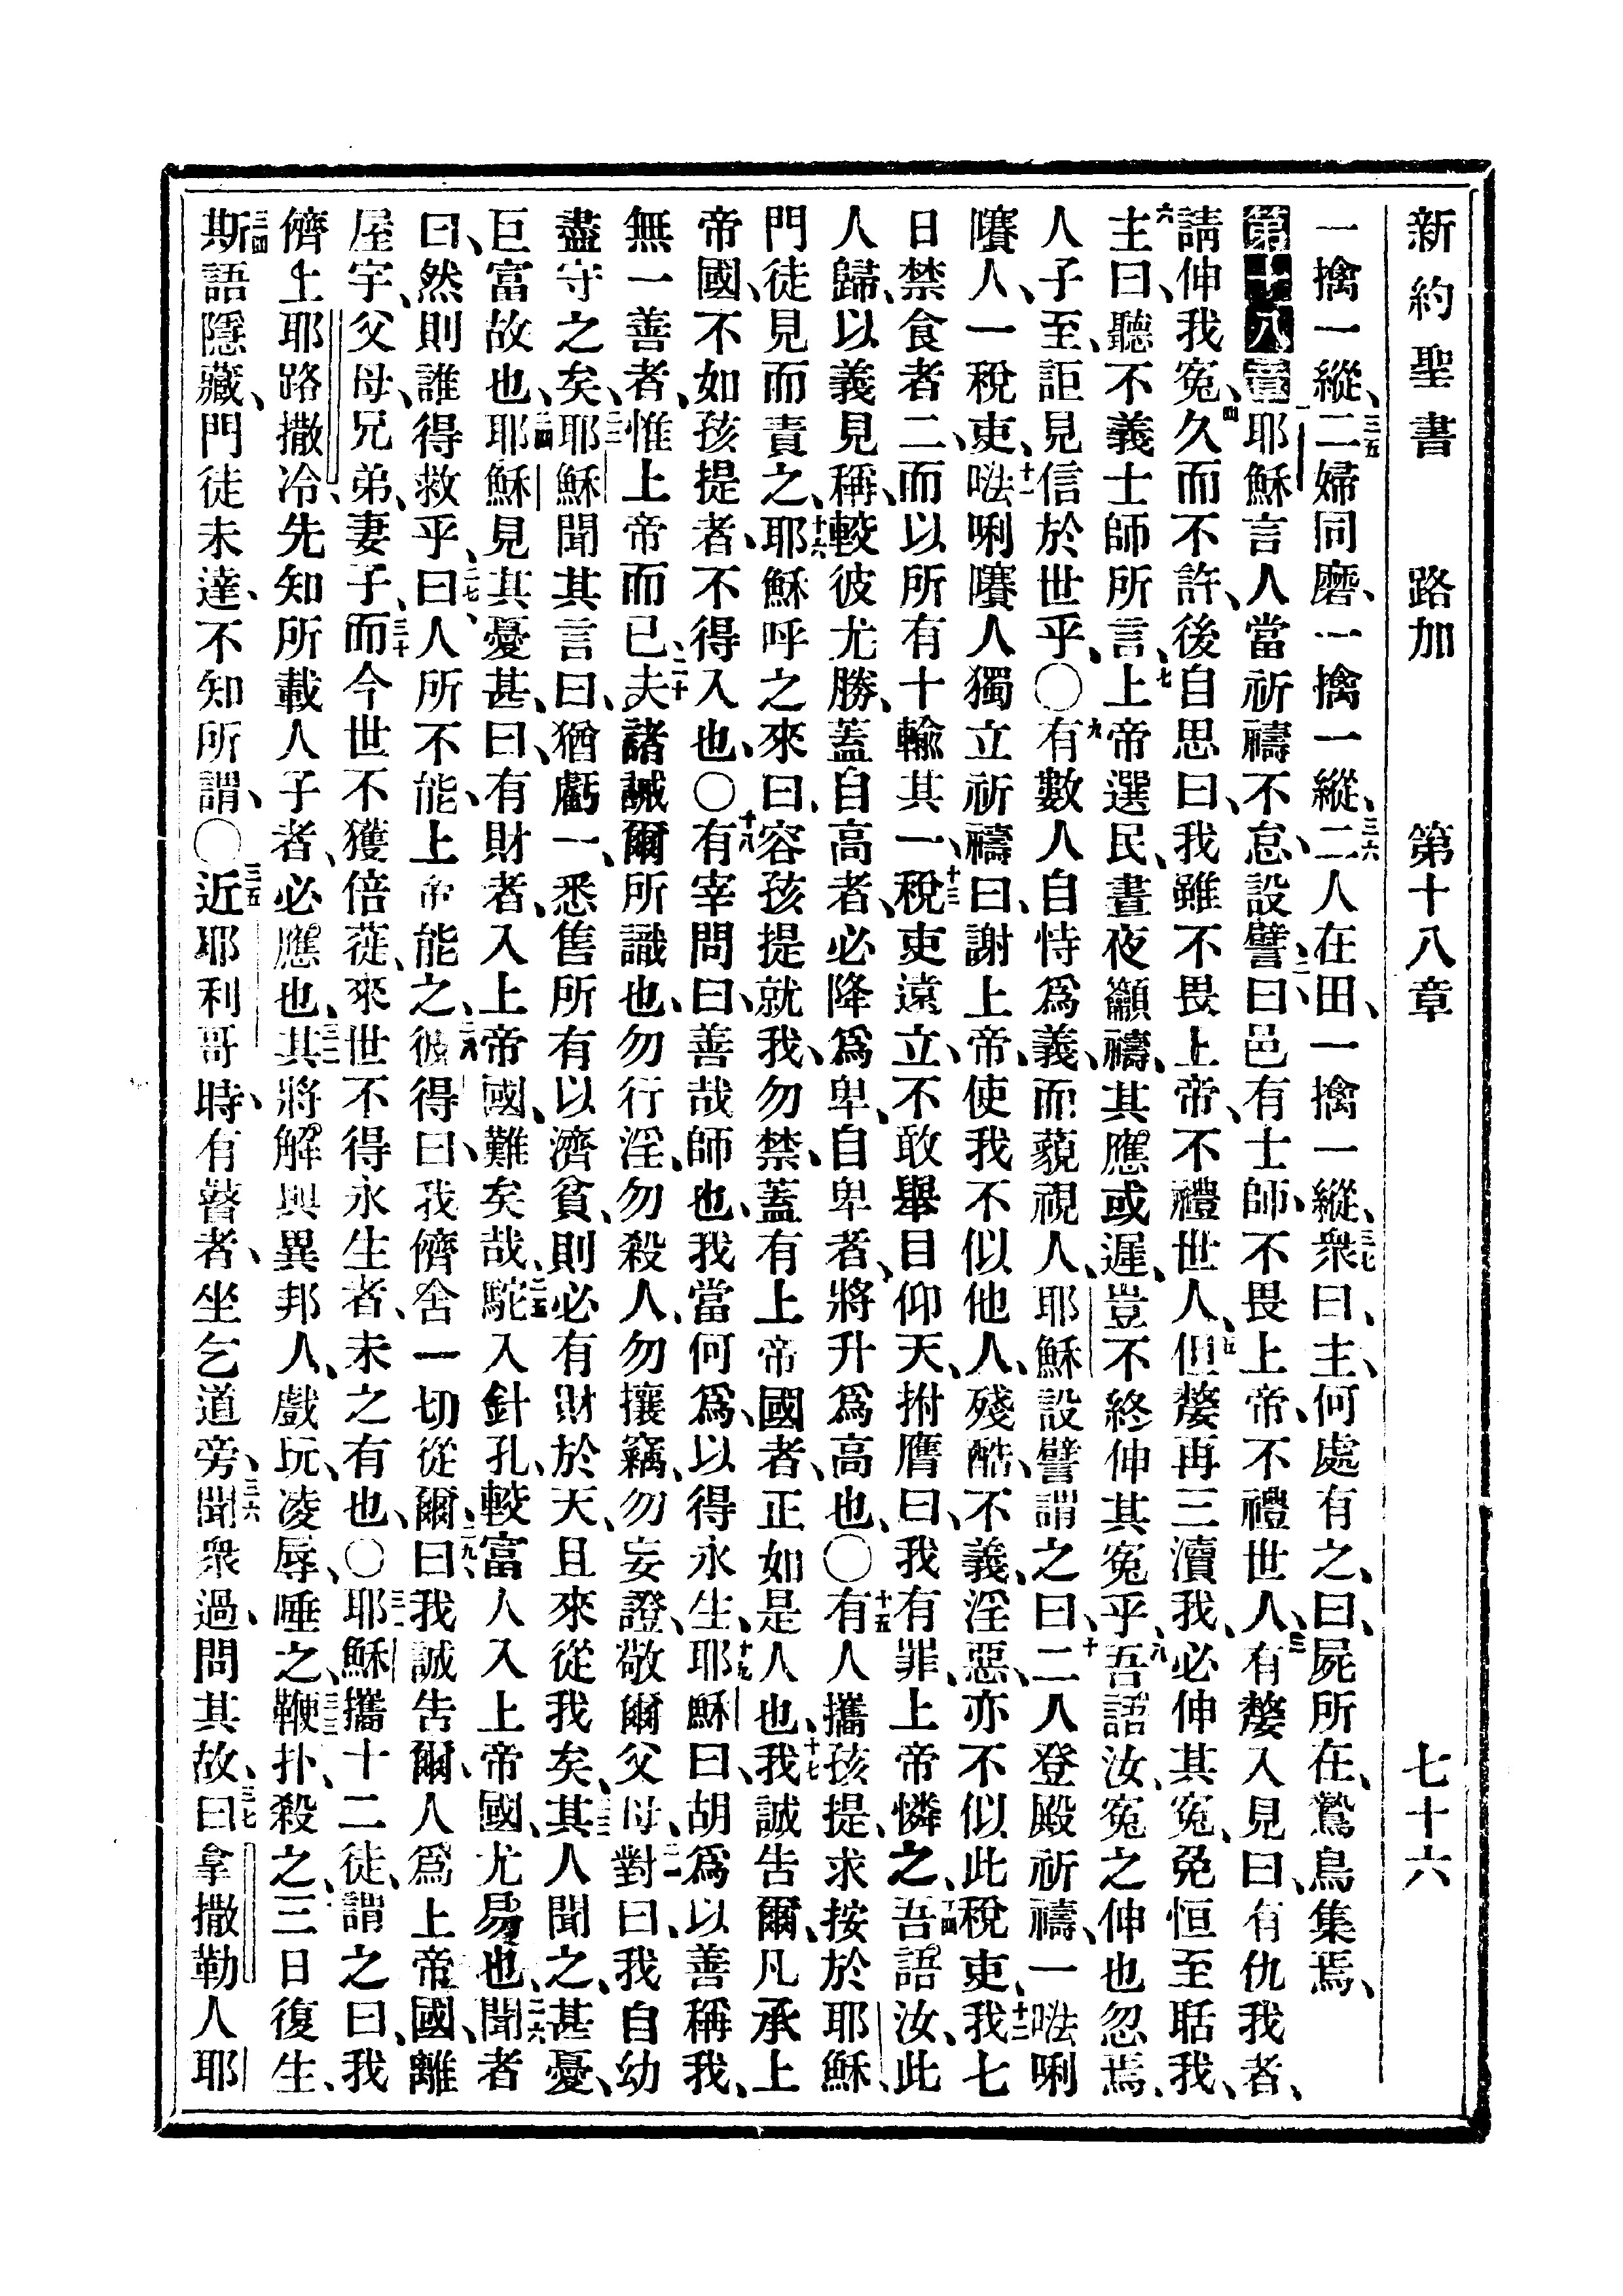 新約聖書 路加 第十八章 七十六
一擒一縱、三五二婦同磨、一擒一縱、三六二人在田、一擒一縱、三七衆曰、主、何處有之、曰、屍所在、鷙鳥集焉、
第十八章一耶穌言人當祈禱不怠、設譬、二曰、邑有士師、不畏上帝、不禮世人、三有嫠入見曰、有仇我者、
請伸我冤、四久而不許、後自思曰、我雖不畏上帝、不禮世人、五但嫠再三瀆我、必伸其冤、免恒至聒我、
六主曰、聽不義士師所言、七上帝選民、晝夜籲禱、其應或遲、豈不終伸其冤乎、八吾語汝、冤之伸也忽焉、
人子至、詎見信於世乎、○九有數人自恃爲義、而藐視人、耶穌設譬謂之曰、十二人登殿祈禱、一𠵽唎
㘔人、一稅吏、十一𠵽唎㘔人獨立祈禱曰、謝上帝、使我不似他人、殘酷、不義、淫惡、亦不似此稅吏、十二我七
日禁食者二、而以所有十輸其一、十三稅吏遠立、不敢舉目仰天、拊膺曰、我有罪、上帝憐之、十四吾語汝、此
人歸、以義見稱、較彼尤勝、蓋自高者、必降爲卑、自卑者、將升爲高也、○十五有人攜孩提、求按於耶穌、
門徒見而責之、十六耶穌呼之來曰、容孩提就我、勿禁、蓋有上帝國者、正如是人也、十七我誠告爾、凡承上
帝國、不如孩提者、不得入也、○十八有宰問曰、善哉師也、我當何爲、以得永生、十九耶穌曰、胡爲以善稱我、
無一善者、惟上帝而已、二十夫諸誡爾所識也、勿行淫、勿殺人、勿攘竊、勿妄證、敬爾父母、二一對曰、我自幼
盡守之矣、二二耶穌聞其言曰、猶虧一、悉售所有以濟貧、則必有財於天、且來從我矣、二三其人聞之、甚憂、
巨富故也、二四耶穌見其憂甚、曰、有財者、入上帝國、難矣哉、二五駝入針孔、較富人入上帝國、尤易也、二六聞者
曰、然則誰得救乎、二七曰、人所不能、上帝能之、二八彼得曰、我儕舍一切從爾、二九曰、我誠告爾、人爲上帝國、離
屋宇、父母、兄弟、妻子、三十而今世不獲倍蓰、來世不得永生者、未之有也、○三一耶穌攜十二徒、謂之曰、我
儕上耶路撒冷、先知所載人子者、必應也、三二其將解與異邦人、戲玩、凌辱、唾之、三三鞭扑、殺之、三日復生、
三四斯語隱藏、門徒未達、不知所謂、○三五近耶利哥時、有瞽者、坐乞道旁、三六聞衆過、問其故、三七曰拿撒勒人耶